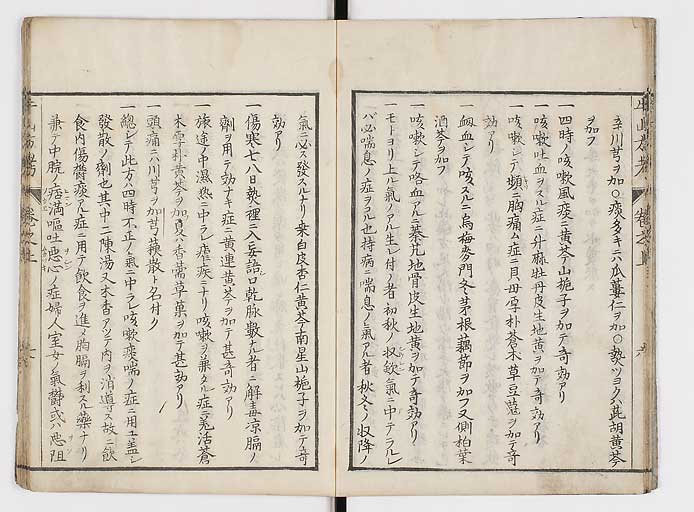 辛川芎ヲ加○痰多キニハ瓜蔞仁ヲ加○熱ツヨクハ茈胡黄芩
ヲ加フ
一四時ノ咳嗽風痰ニ黄芩山梔子ヲ加テ奇効アリ
一咳嗽吐血ヲスル症ニ升麻牡丹皮生地黄ヲ加テ奇効アリ
一咳嗽シテ頻ニ胸痛ム症ニ貝母厚朴蒼朮草豆蔲ヲ加テ奇
効アリ
一衂血シテ咳スルニ烏梅麥門冬茅根藕節ヲ加フ又側柏葉
酒芩ヲ加フ
一咳嗽シテ咯血アルニ棊芃地骨皮生地黄ヲ加テ奇効アリ
一モトヨリ上ル氣ノアル生レ付ノ者初秋ノ収歛ノ氣ニ中テラルレ
バ必喘息ノ症ヲヲコル也持病ニ喘息ノ氣アル者秋冬ノ収降ノ
氣ニ必ス發スルナリ桒白皮杏仁黄芩南星山梔子ヲ加テ奇
効アリ
一傷寒七八日熱裡ニ入妄語口乾脉數ナル者ニ解毒凉膈ノ
劑ヲ用テ効ナキ症ニ黄連黄芩ヲ加テ甚奇効アリ
一旅途ノ中濕熱ニ中ラレ瘧疾ニナリ咳嗽ヲ兼タル症ニ羌活蒼
朮厚朴黄芩ヲ加夏ハ香薷草菓ヲ加テ甚効アリ
一頭痛ニハ川芎ヲ加芎蘓散ト名付ク
一總シテ此方ハ四時不正ノ氣ニ中ラレ咳嗽痰喘ノ症ニ用ユ盖シ
發散ノ劑也其中二陳湯又木香アツテ内ヲ消導ス故ニ飲
食内傷欝痰アル症ニ用テ飲食ヲ進メ胸膈ヲ利スル藥ナリ
兼テ中脘ノ痞満嘔吐惡心ノ症婦人室女ノ氣欝或ハ惡阻